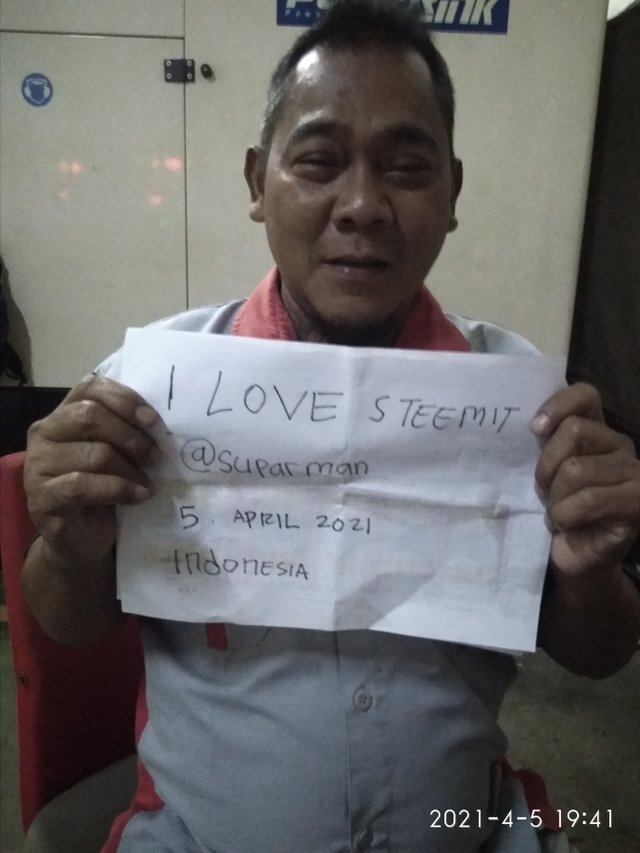 I LOVE STEEMIT
@suparman
5. APRIL 2021
IndonESIA
2021-4-5 19:41